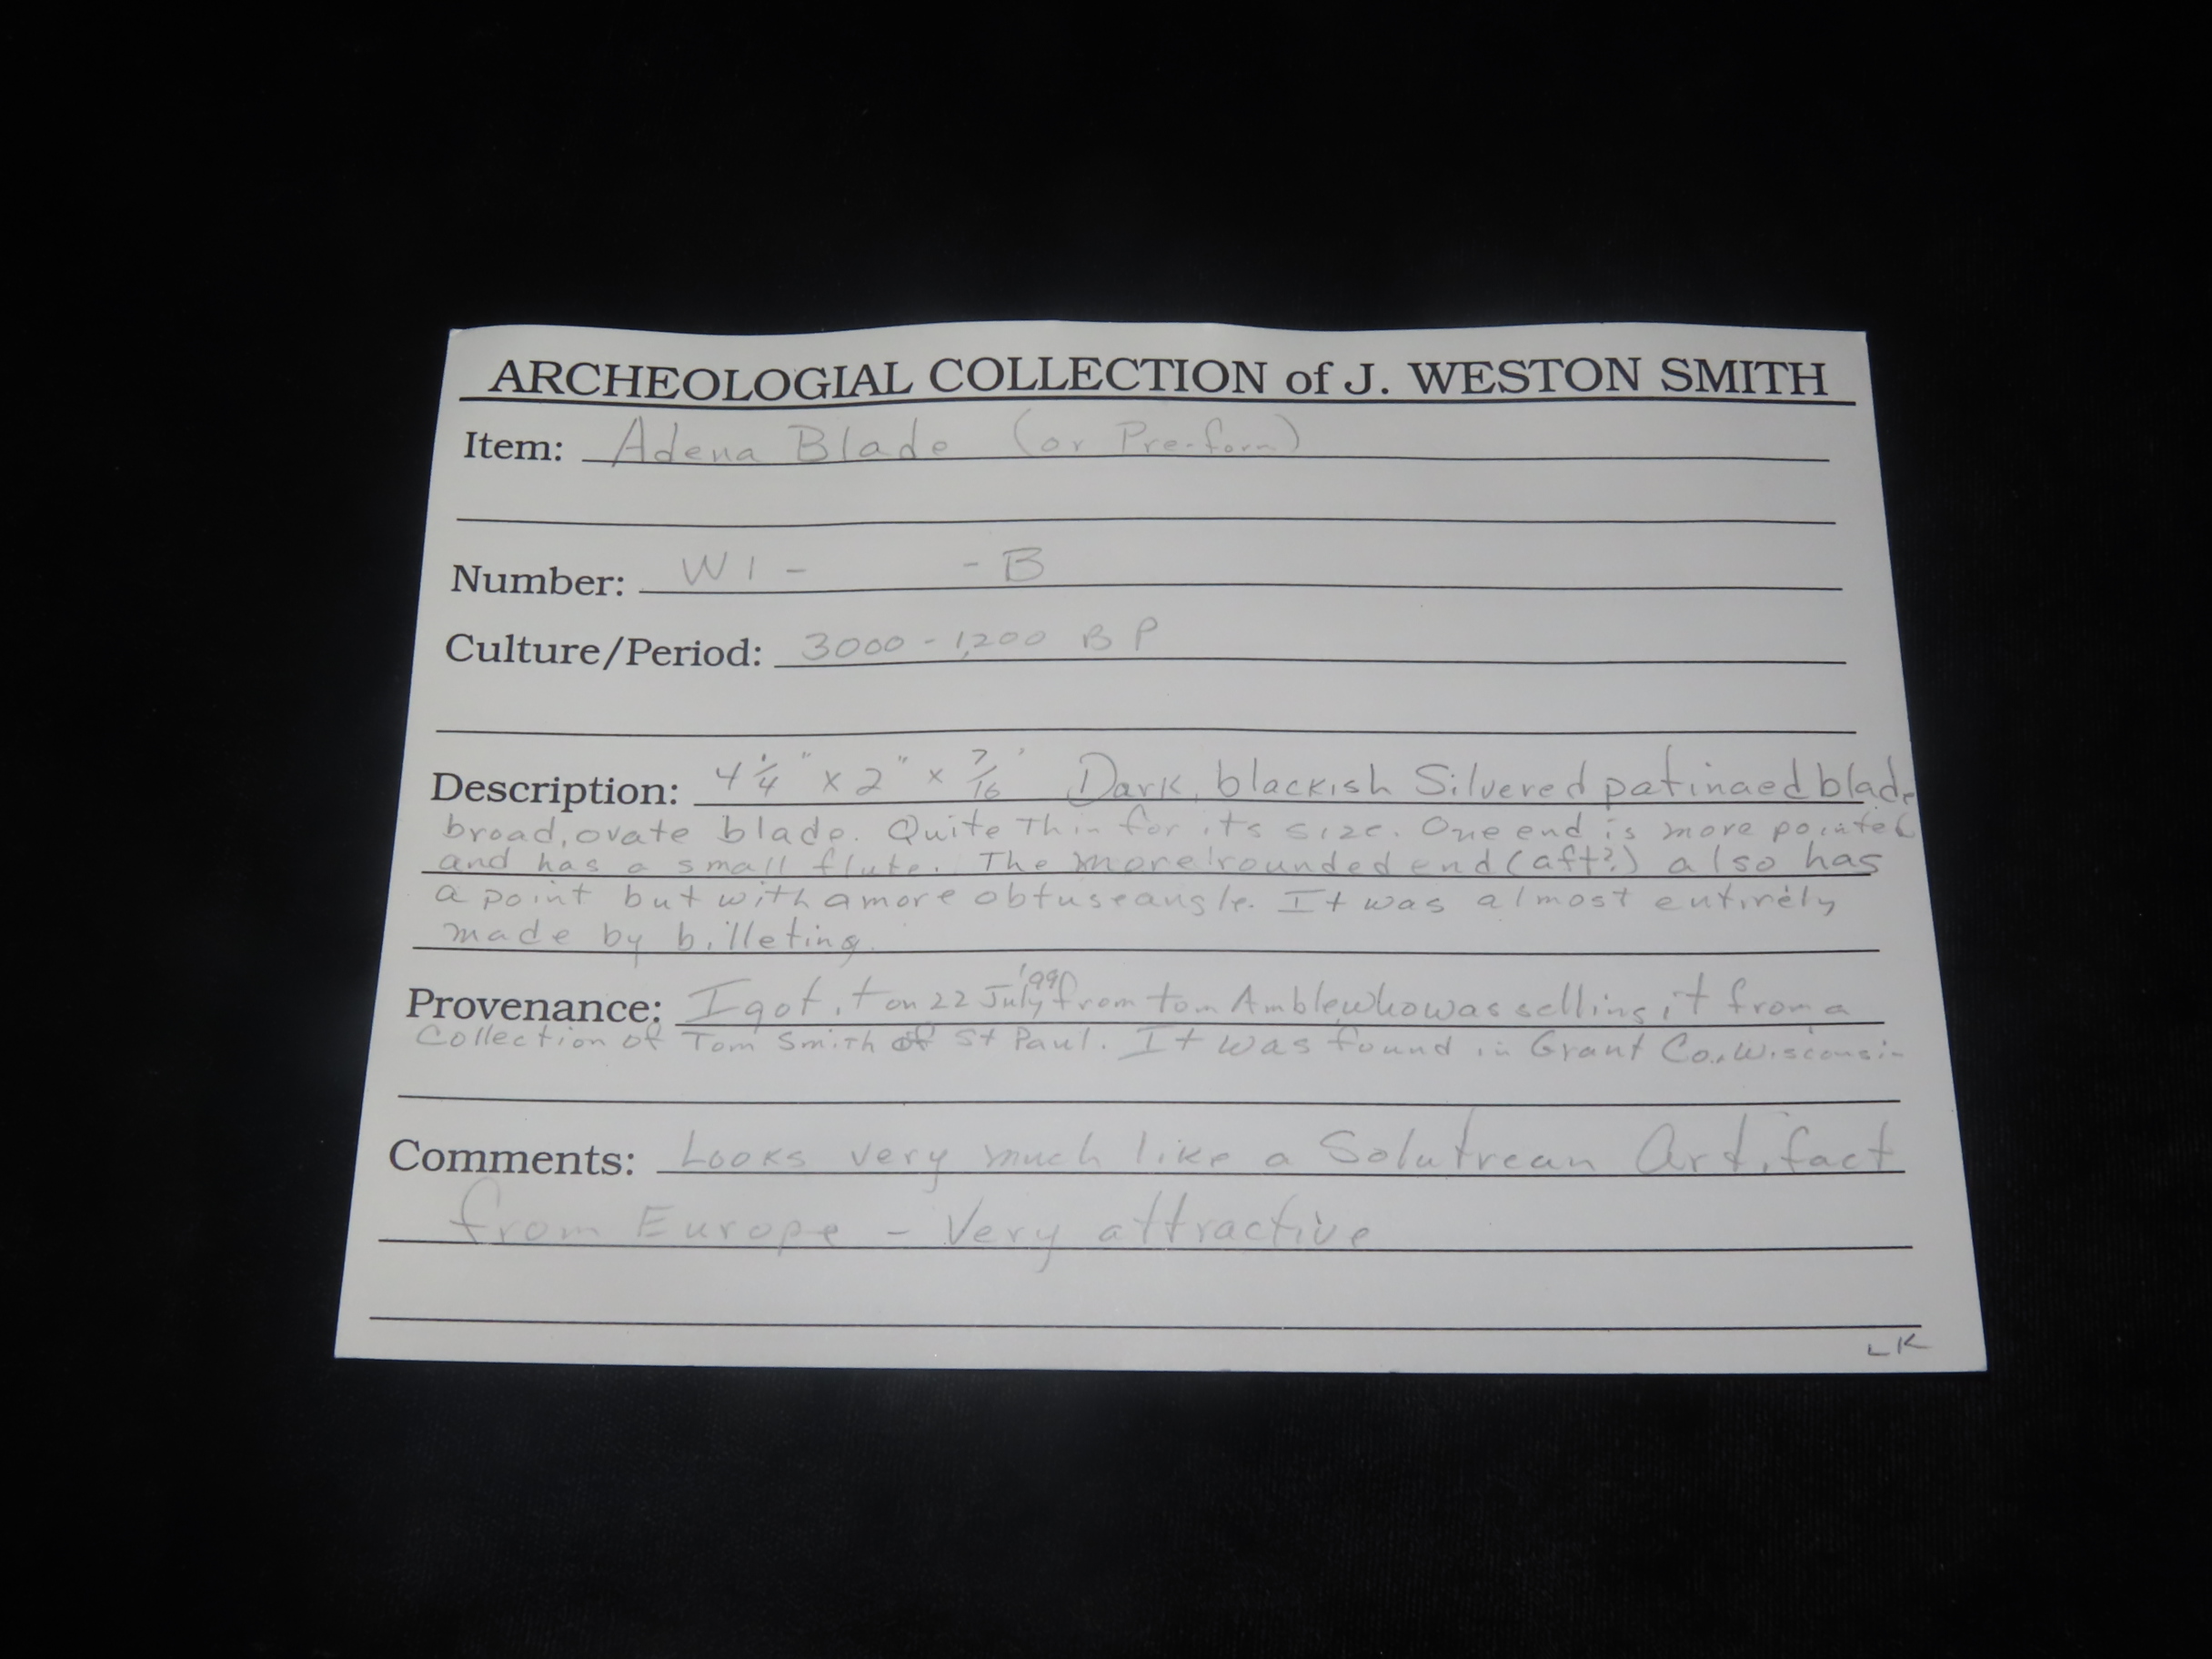 ARCHEOLOGIAL COLLECTION of J. WESTON SMITH
Item: Adena Blade (or Pre-form)
Number: WI - - B
Culture/Period: 3000 - 1,200 BP
Description: 4 1/4" x 2" x 7/16' Dark, blackish Silvered patinaed blade
broad, ovate blade. Quite Thin for its size. One end is more pointed
and has a small flute. The more rounded end (aft?) also has
a point but with a more obtuse angle. It was almost entirely
made by billeting.
Provenance: I got it on 22 July '99 from tom Amble who was selling it from a
Collection of Tom Smith of St Paul. It was found in Grant Co., Wisconsin
Comments: Looks very much like a Solutrean Artifact
from Europe - Very attractive
LK